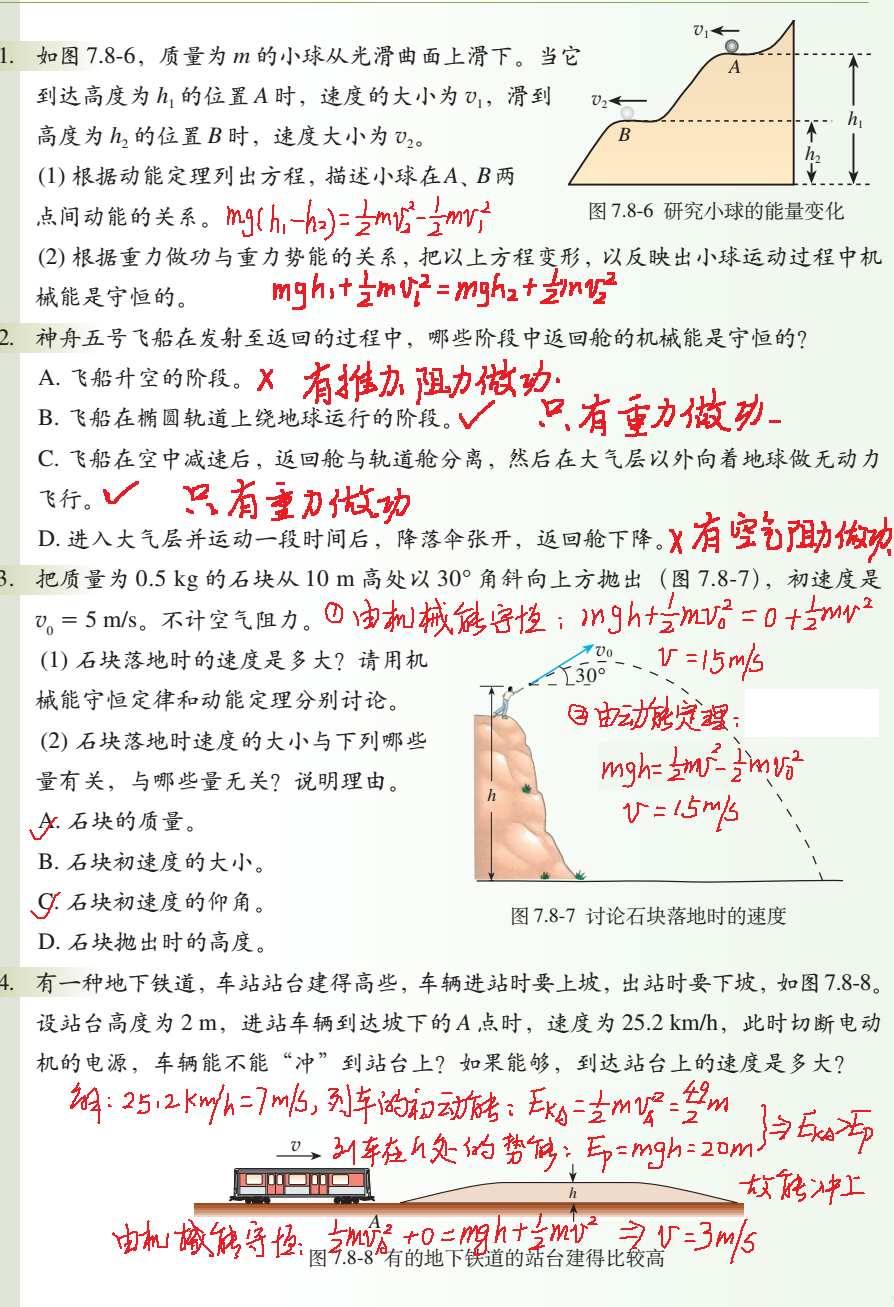 1. 如图 7.8-6，质量为 m 的小球从光滑曲面上滑下。当它
到达高度为 h₁ 的位置 A 时，速度的大小为 v₁，滑到
高度为 h₂ 的位置 B 时，速度大小为 v₂。
(1) 根据动能定理列出方程，描述小球在A、B两
点间动能的关系。mg(h₁-h₂)=½mv₂²-½mv₁²
v₁
A
v₂
B
h₁
h₂
图 7.8-6 研究小球的能量变化
(2) 根据重力做功与重力势能的关系，把以上方程变形，以反映出小球运动过程中机
械能是守恒的。 mgh₁+½mv₁²=mgh₂+½mv₂²
2. 神舟五号飞船在发射至返回的过程中，哪些阶段中返回舱的机械能是守恒的？
A. 飞船升空的阶段。× 有推力,阻力做功.
B. 飞船在椭圆轨道上绕地球运行的阶段。✓ 只有重力做功
C. 飞船在空中减速后，返回舱与轨道舱分离，然后在大气层以外向着地球做无动力
飞行。✓ 只有重力做功
D. 进入大气层并运动一段时间后，降落伞张开，返回舱下降。× 有空气阻力做功
3. 把质量为 0.5 kg 的石块从 10 m 高处以 30° 角斜向上方抛出（图 7.8-7），初速度是
v₀ = 5 m/s。不计空气阻力。① 由机械能守恒：mgh+½mv₀²=0+½mv²
v=15m/s
(1) 石块落地时的速度是多大？请用机
械能守恒定律和动能定理分别讨论。
(2) 石块落地时速度的大小与下列哪些
量有关，与哪些量无关？说明理由。
✓A. 石块的质量。
B. 石块初速度的大小。
✓C. 石块初速度的仰角。
D. 石块抛出时的高度。
v₀
30°
② 由动能定理：
mgh=½mv²-½mv₀²
v=15m/s
h
图 7.8-7 讨论石块落地时的速度
4. 有一种地下铁道，车站站台建得高些，车辆进站时要上坡，出站时要下坡，如图7.8-8。
设站台高度为 2 m，进站车辆到达坡下的 A 点时，速度为 25.2 km/h，此时切断电动
机的电源，车辆能不能“冲”到站台上？如果能够，到达站台上的速度是多大？
解：25.2km/h=7m/s，列车的初动能：E_kA=½mv_A²=49/2 m
列车在h处的势能：E_p=mgh=20m }⇒E_kA>E_p
故能冲上
v
h
A
由机械能守恒：½mv_A²+0=mgh+½mv² ⇒ v=3m/s
图 7.8-8 有的地下铁道的站台建得比较高